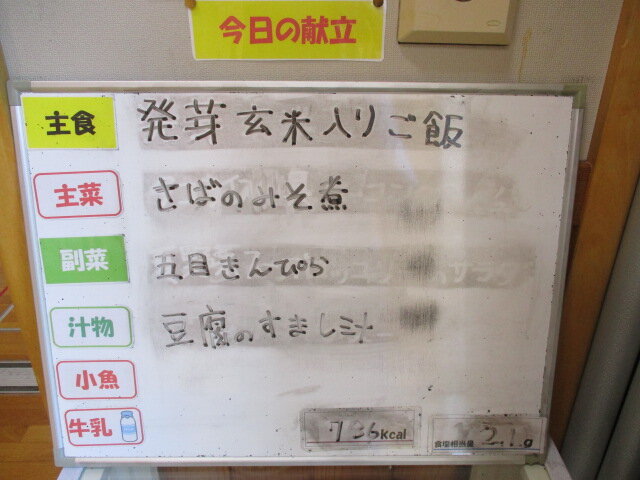 今日の献立
主食 発芽玄米入りご飯
主菜 さばのみそ煮
副菜 五目きんぴら
汁物 豆腐のすまし汁
小魚
牛乳
736kcal
食塩相当量 2.1g